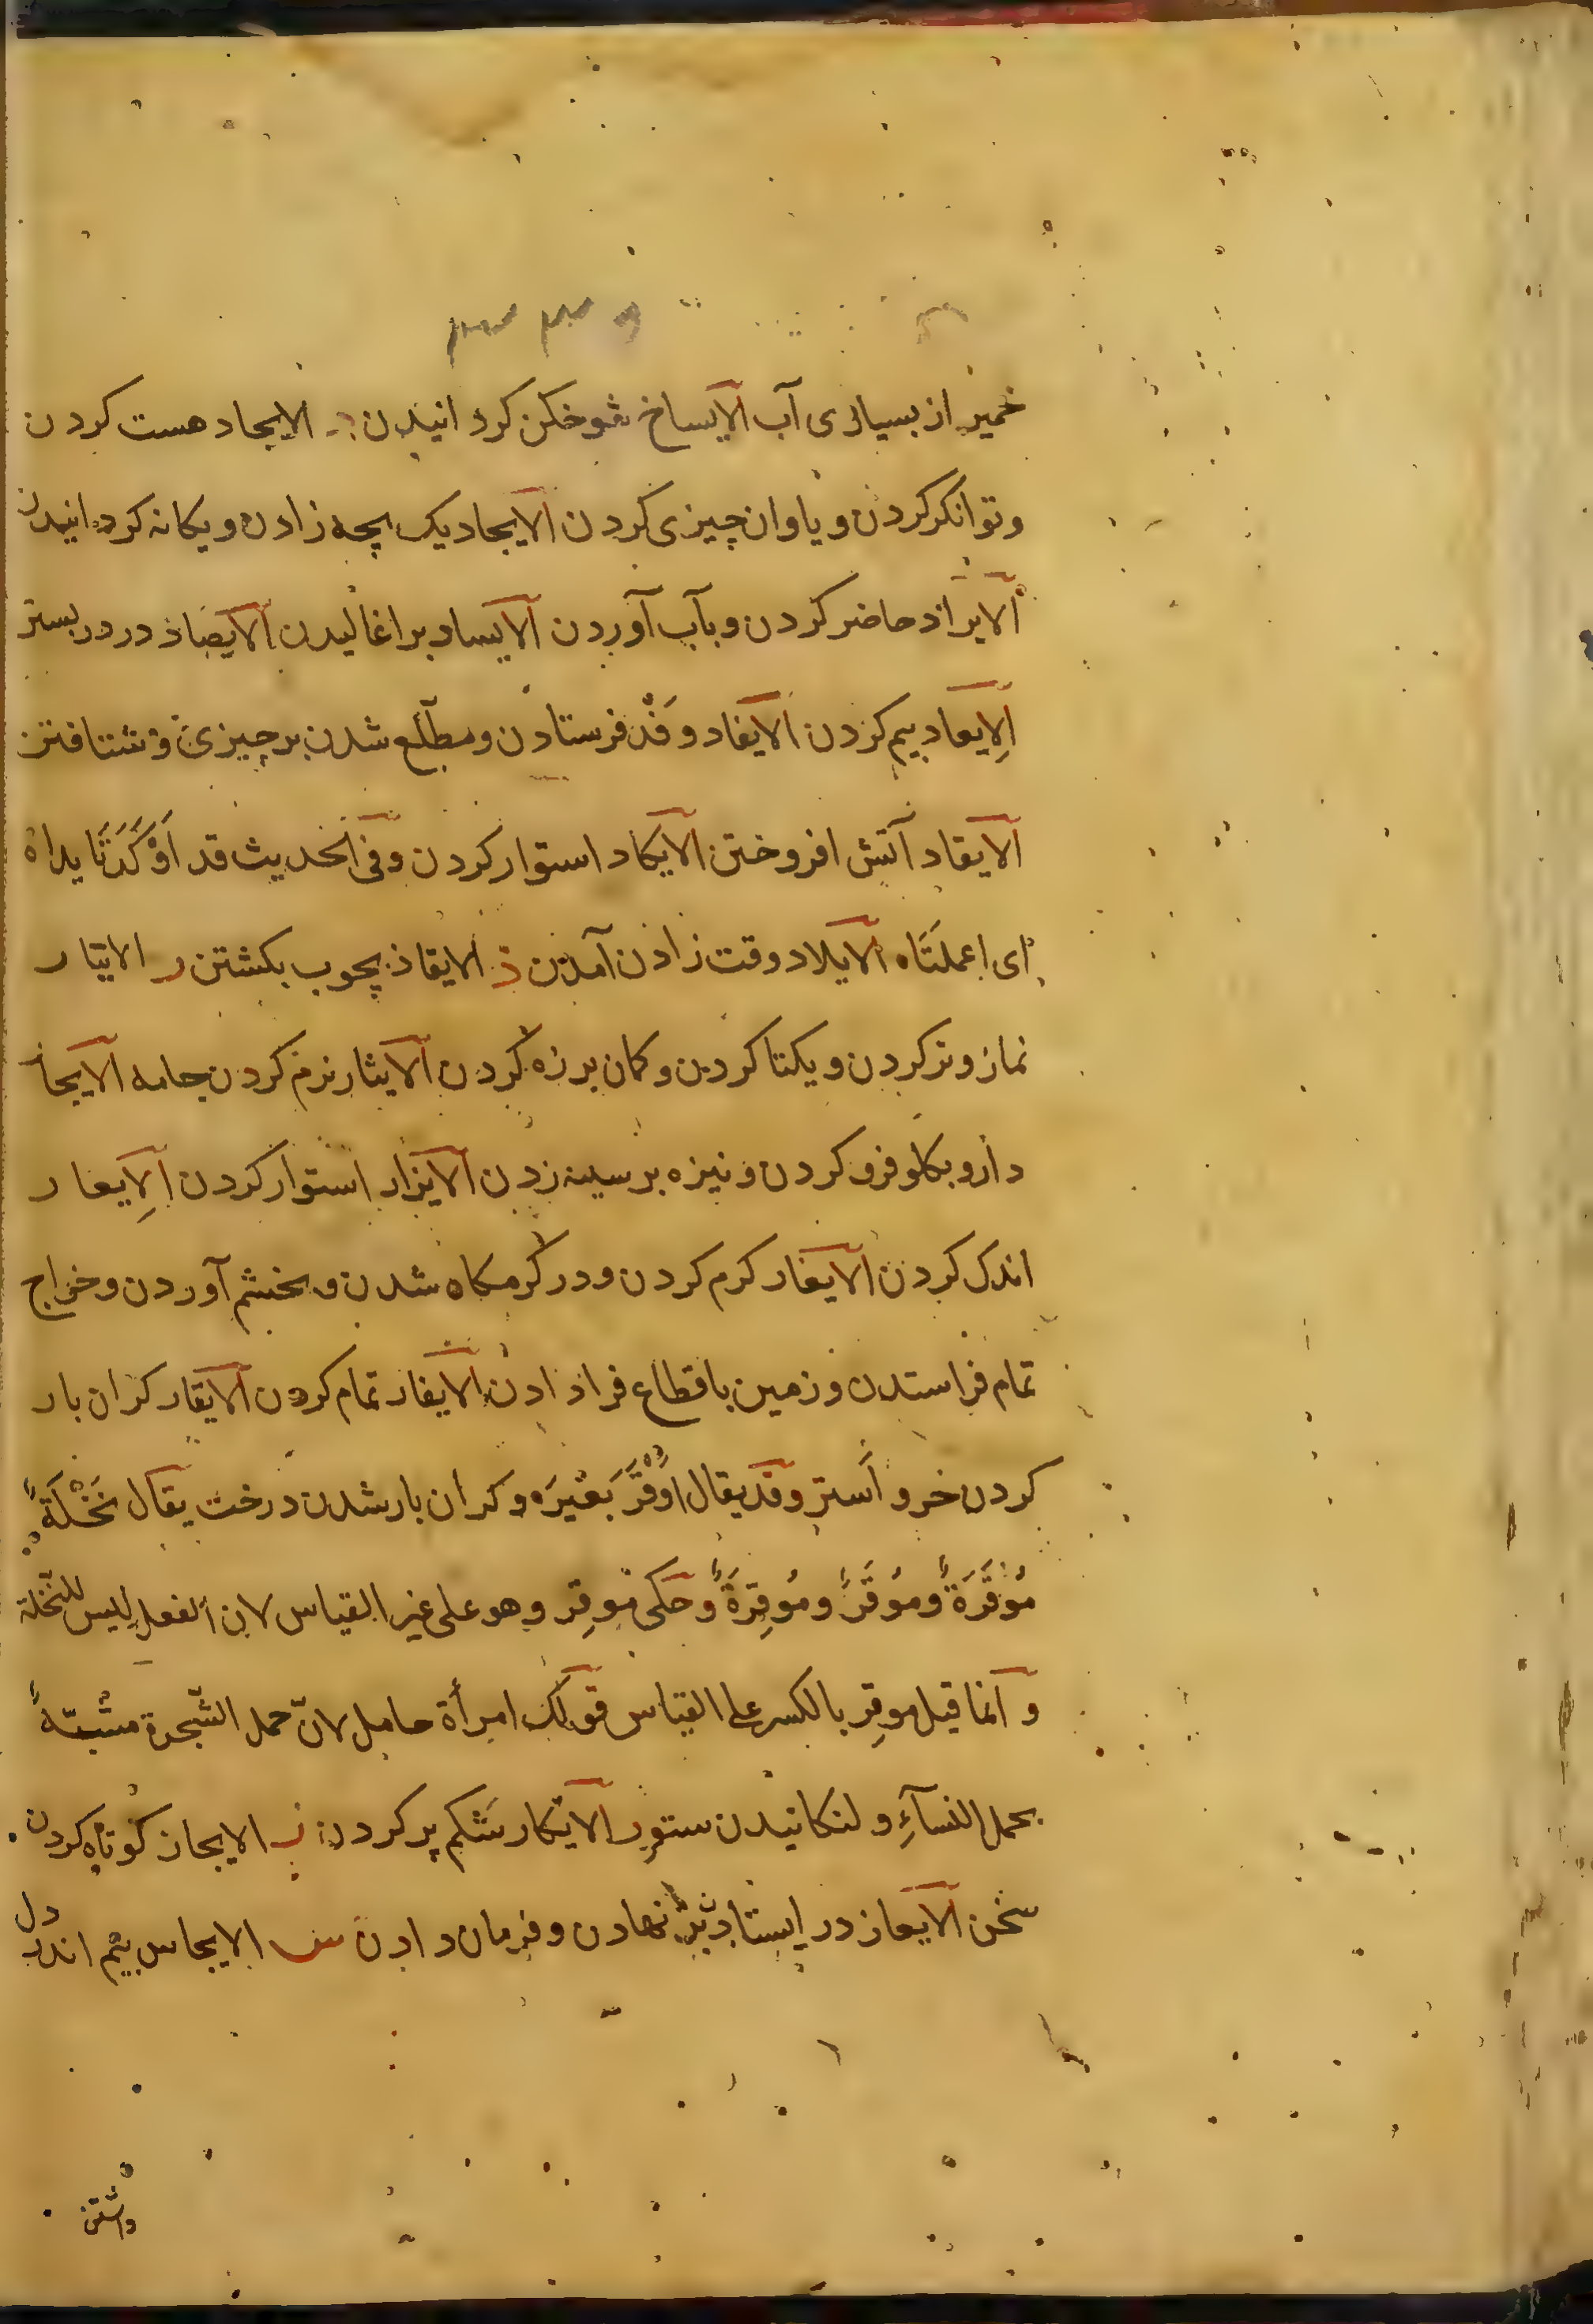 خمیر از بسیاری آب الایساخ شوخکن کردانیدن د الایجاد هست کردن
وتوانکر کردن ویاوان چیزی کردن الایجاد یک بچه زادن ویکانه کردانیدن
الایراد حاضر کردن وبآب آوردن الایساد براغالیدن الایصاد در دربستن
الاِیعاد بیم کردن الایفاد وَفْد فرستادن ومطّلع شدن بر چیزی وشتافتن
الایقاد آتش افروختن الایکاد استوار کردن وفی الحدیث قد اَوْکَدَتَا یداه
ای اعملَتَاه الایلاد وقت زادن آمدن ذ الایقاذ بچوب بکشتن ر الایتار
نماز وتر کردن ویکتا کردن وکمان بر زه کردن الایثار نرم کردن جامه الایجار
دارو بکلو فرو کردن ونیزه بر سینه زدن الایزار استوار کردن الاِیعار
اندک کردن الایغار کرم کردن ودر کرمکاه شدن وبخشم آوردن وخراج
تمام فراستدن وزمین باقطاع فرادادن الایفار تمام کردن الایقار کران بار
کردن خر و اَستر وقد یقال اَوْقَرَ بَعیرَه وکران بار شدن درخت یقال نَخْلَةٌ
مُوقَرَةٌ ومُوقَرٌ ومُوقِرَةٌ وحکی موقِر وهو علی غیر القیاس لان الفعل لیس للنخلة
وانما قیل موقِر بالکسر علی القیاس قولک امرأة حامل لانّ حمل الشّجرة مشبّهٌ
بحمل النسآءِ ولنکانیدن ستور الایکار شکم پر کردن ز الایجاز کوتاه کردن
سخن الایعاز در ایستادن نهادن وفرمان دادن س الایجاس بیم اندر دل
داشتن